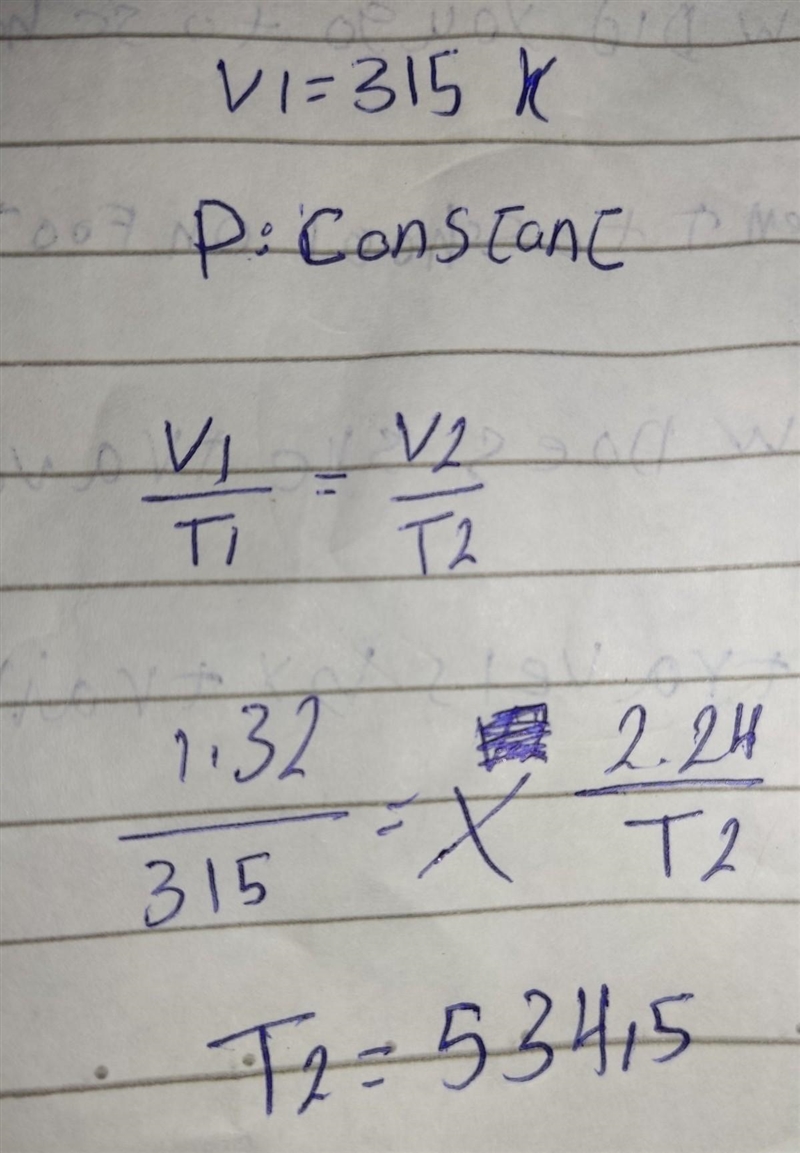 V1 = 315 K
P: Constant
V1/T1 = V2/T2
1.32/315 = X 2.24/T2
T2 = 534,5